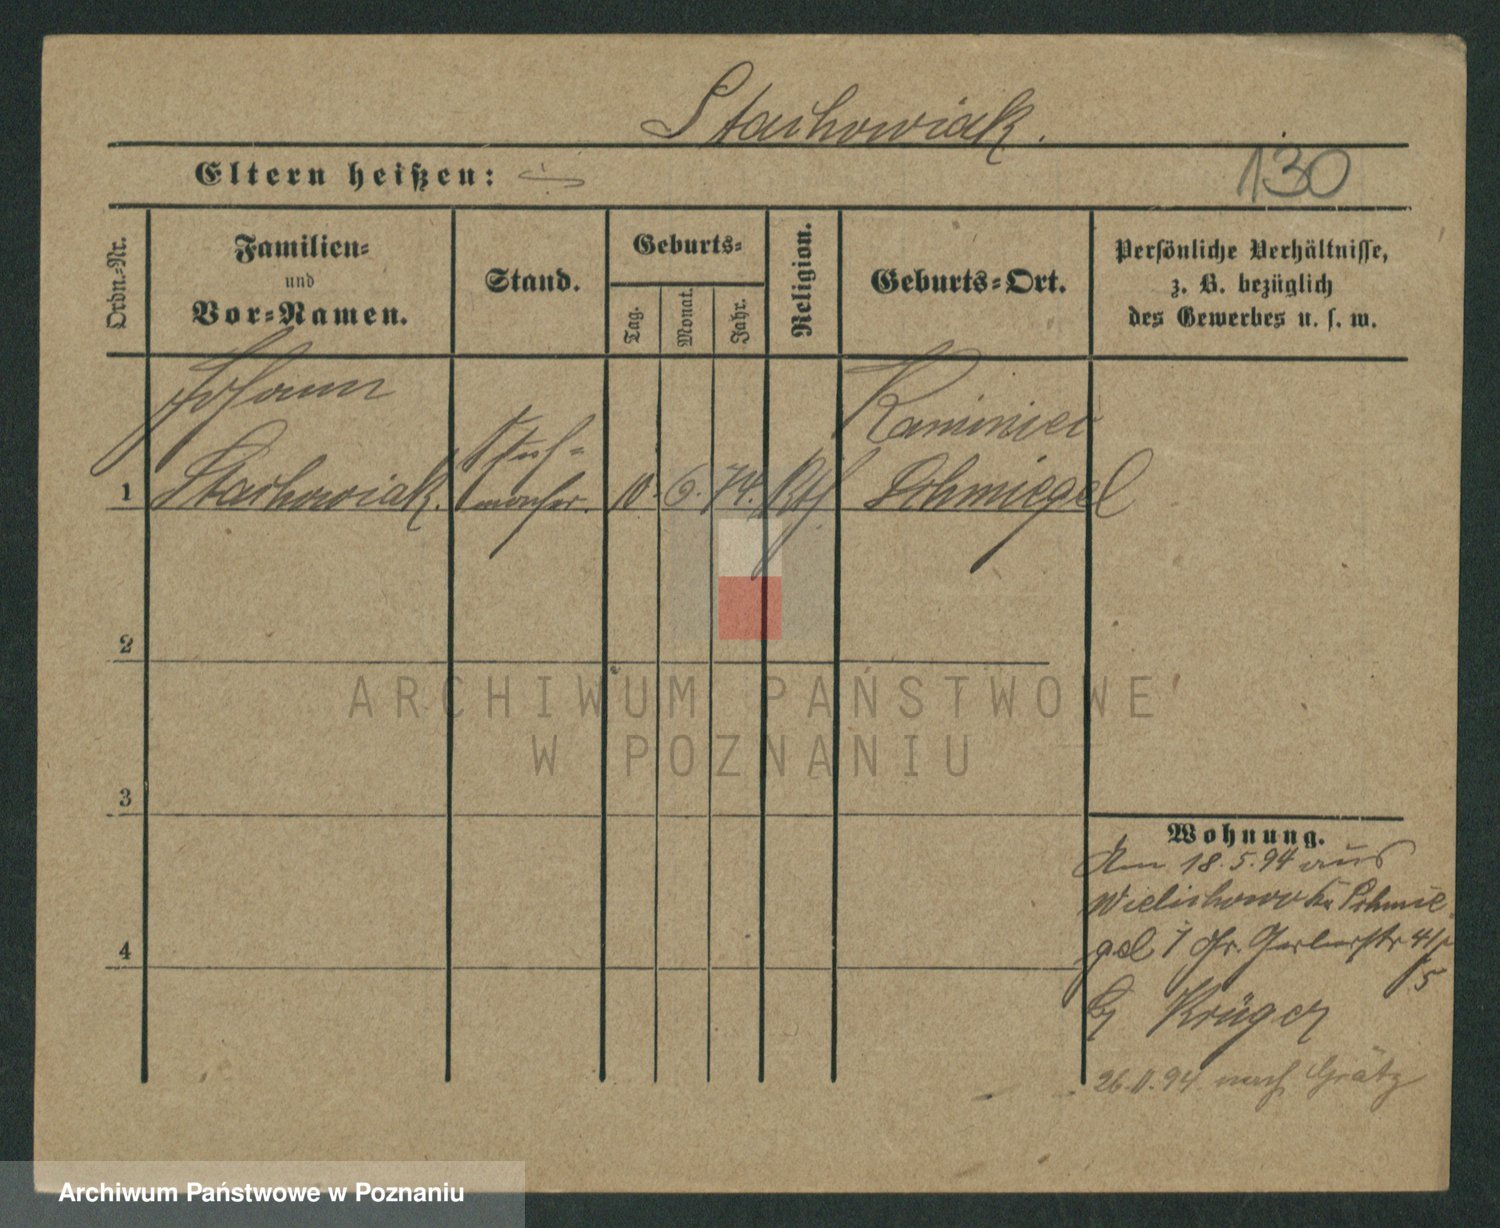 Stachowiak.
Eltern heißen:
130
Ordn.-Nr.
Familien-
und
Vor-Namen.
Stand.
Geburts-
Tag.
Monat.
Jahr.
Religion.
Geburts-Ort.
Persönliche Verhältnisse,
z. B. bezüglich
des Gewerbes u. s. w.
Johann
Stachowiak.
Schuh-
macher.
10. 6. 74. Kth
Kaminiec
Schmiegel
1
2
3
4
ARCHIWUM PAŃSTWOWE
W POZNANIU
Wohnung.
Am 18.5.94 aus
Wielichowo Kr Schmie
gel Gr. Gerberstr 41
5
Krüger
26.11.94 nach Grätz
Archiwum Państwowe w Poznaniu